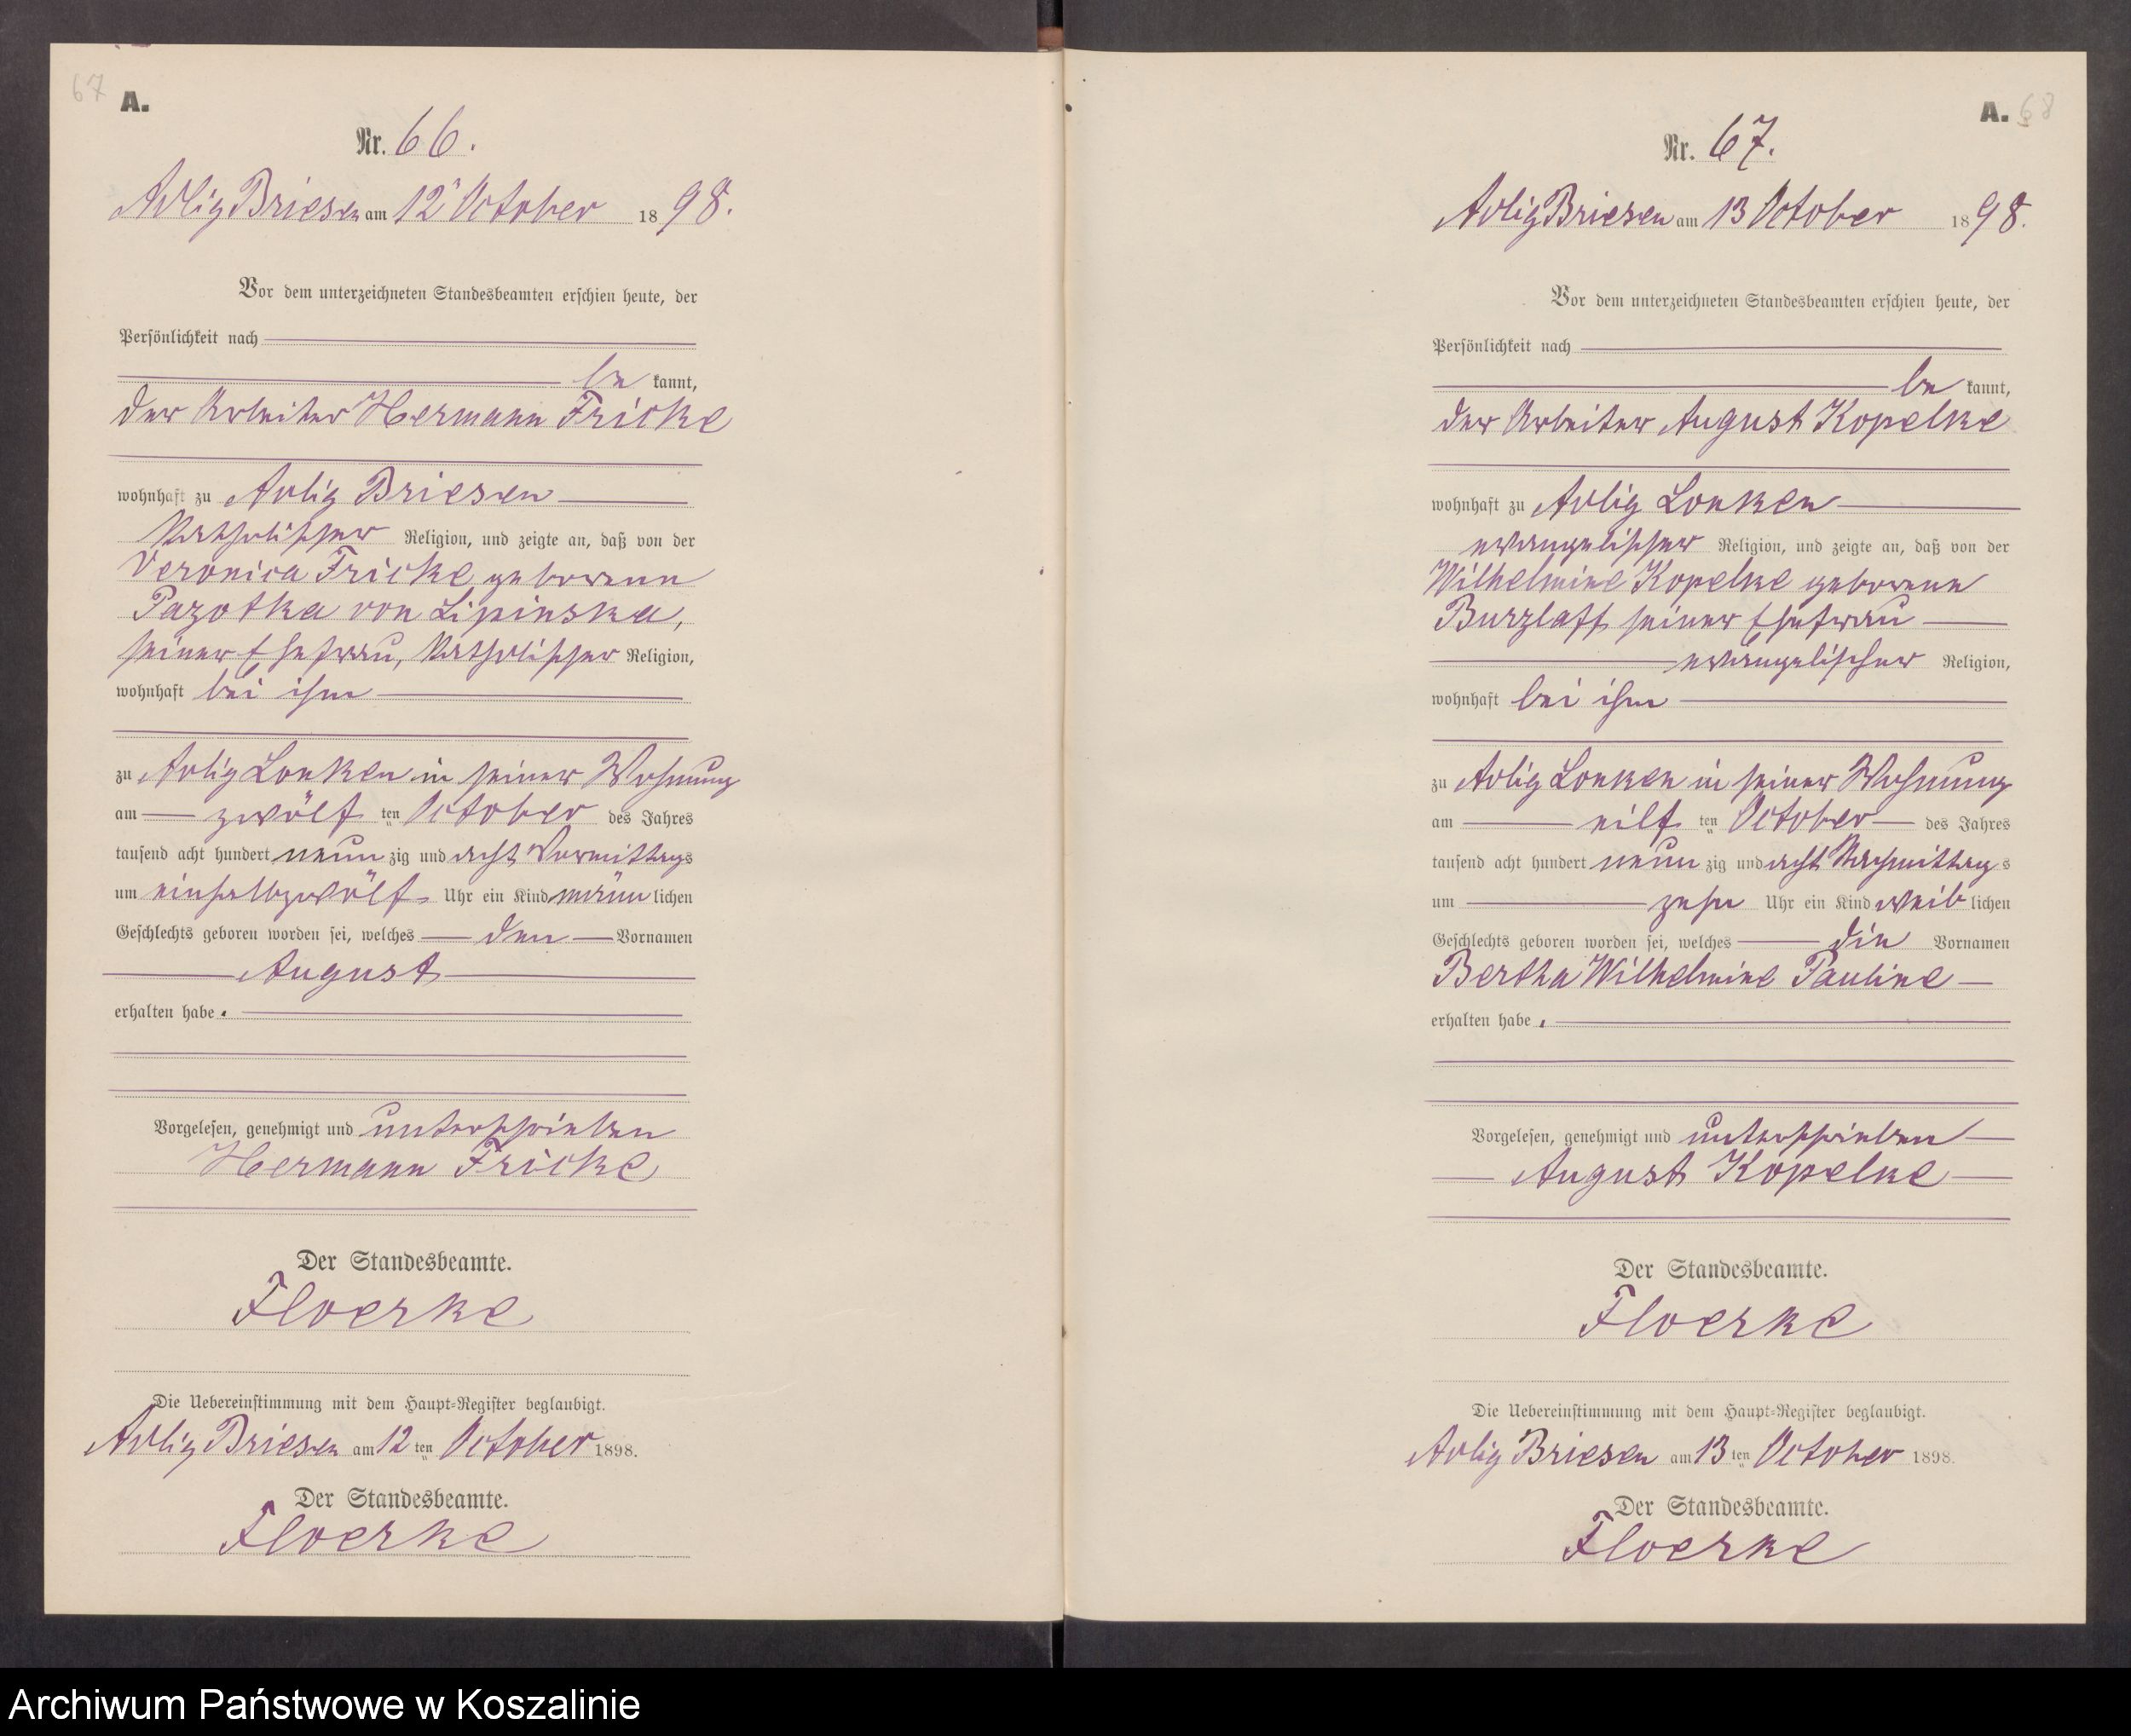 67
A.
Nr. 66.
Adlig Briesen am 12 October 1898.
Vor dem unterzeichneten Standesbeamten erschien heute, der
Persönlichkeit nach
be kannt,
der Arbeiter Hermann Fricke
wohnhaft zu Adlig Briesen
katholischer Religion, und zeigte an, daß von der
Veronica Fricke geborenen
Pazotka von Lipinska,
seiner Ehefrau, katholischer Religion,
wohnhaft bei ihm
zu Adlig Lonken in seiner Wohnung
am zwölf ten October des Jahres
tausend acht hundert neun zig und acht Vormittags
um einhalbzwölf Uhr ein Kind männ lichen
Geschlechts geboren worden sei, welches den Vornamen
August
erhalten habe.
Vorgelesen, genehmigt und unterschrieben
Hermann Fricke
Der Standesbeamte.
Floerke
Die Uebereinstimmung mit dem Haupt-Register beglaubigt.
Adlig Briesen am 12 ten October 1898.
Der Standesbeamte.
Floerke
A. 68
Nr. 67.
Adlig Briesen am 13 October 1898.
Vor dem unterzeichneten Standesbeamten erschien heute, der
Persönlichkeit nach
be kannt,
der Arbeiter August Kopelke
wohnhaft zu Adlig Lonken
evangelischer Religion, und zeigte an, daß von der
Wilhelmine Kopelke geborenen
Burzlaff seiner Ehefrau
evangelischer Religion,
wohnhaft bei ihm
zu Adlig Lonken in seiner Wohnung
am eilf ten October des Jahres
tausend acht hundert neun zig und acht Nachmittag s
um zehn Uhr ein Kind weib lichen
Geschlechts geboren worden sei, welches die Vornamen
Bertha Wilhelmine Pauline
erhalten habe.
Vorgelesen, genehmigt und unterschrieben
August Kopelke
Der Standesbeamte.
Floerke
Die Uebereinstimmung mit dem Haupt-Register beglaubigt.
Adlig Briesen am 13 ten October 1898.
Der Standesbeamte.
Floerke
Archiwum Państwowe w Koszalinie